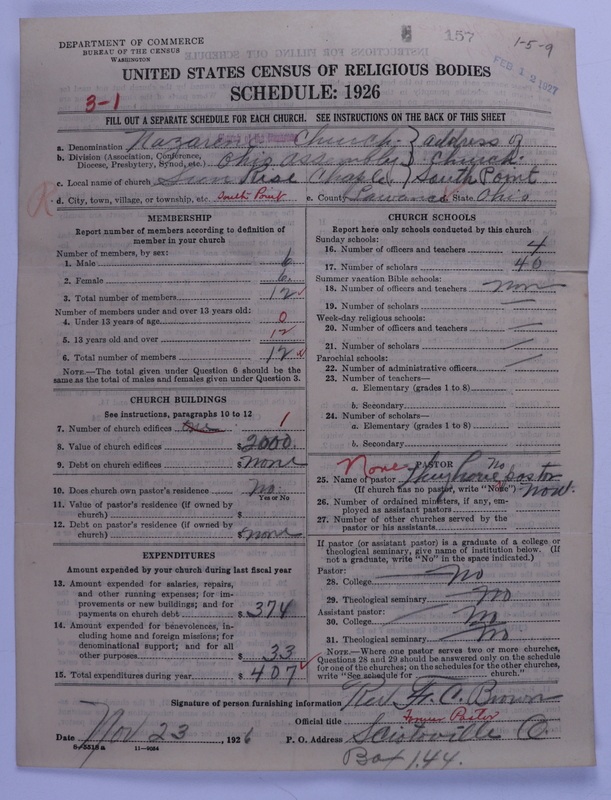 157
1-5-9
DEPARTMENT OF COMMERCE
BUREAU OF THE CENSUS
WASHINGTON
FEB 12 1927
UNITED STATES CENSUS OF RELIGIOUS BODIES
SCHEDULE: 1926
3-1
FILL OUT A SEPARATE SCHEDULE FOR EACH CHURCH. SEE INSTRUCTIONS ON THE BACK OF THIS SHEET
a. Denomination Nazarene Church } address of
b. Division (Association, Conference, Diocese, Presbytery, Synod, etc.) Ohio assembly } Church.
c. Local name of church Sun Rise Chaple } South Point
R d. City, town, village, or township, etc. South Point e. County Lawrence State Ohio
MEMBERSHIP
Report number of members according to definition of
member in your church
Number of members, by sex:
1. Male 6
2. Female 6
3. Total number of members 12 ✓
Number of members under and over 13 years old:
4. Under 13 years of age 0
5. 13 years old and over 12
6. Total number of members 12
NOTE.—The total given under Question 6 should be the
same as the total of males and females given under Question 3.
CHURCH BUILDINGS
See instructions, paragraphs 10 to 12
7. Number of church edifices one 1
8. Value of church edifices $ 2000.
9. Debt on church edifices $ none
10. Does church own pastor's residence No.
Yes or No
11. Value of pastor's residence (if owned by
church) $
12. Debt on pastor's residence (if owned by
church) $ none
EXPENDITURES
Amount expended by your church during last fiscal year
13. Amount expended for salaries, repairs,
and other running expenses; for im-
provements or new buildings; and for
payments on church debt $ 374
14. Amount expended for benevolences, in-
cluding home and foreign missions; for
denominational support; and for all
other purposes $ 33
15. Total expenditures during year $ 407 ✓
CHURCH SCHOOLS
Report here only schools conducted by this church
Sunday schools:
16. Number of officers and teachers 4
17. Number of scholars 40
Summer vacation Bible schools:
18. Number of officers and teachers non
19. Number of scholars
Week-day religious schools:
20. Number of officers and teachers
21. Number of scholars
Parochial schools:
22. Number of administrative officers
23. Number of teachers—
a. Elementary (grades 1 to 8)
b. Secondary
24. Number of scholars—
a. Elementary (grades 1 to 8)
b. Secondary
None PASTOR
25. Name of pastor They have No pastor
(If church has no pastor, write "None") now.
26. Number of ordained ministers, if any, em-
ployed as assistant pastors
27. Number of other churches served by the
pastor or his assistants
If pastor (or assistant pastor) is a graduate of a college or
theological seminary, give name of institution below. (If
not a graduate, write "No" in the space indicated.)
Pastor:
28. College No
29. Theological seminary No
Assistant pastor:
30. College No
31. Theological seminary No
NOTE.—Where one pastor serves two or more churches,
Questions 28 and 29 should be answered only on the schedule
for one of the churches; on the schedules for the other churches,
write "See schedule for church."
Signature of person furnishing information Rev F. C. Brown
Official title Former Pastor
Date Nov 23, 1926 P. O. Address Sciotoville O.
8-5518a 11-9064
Box 144.